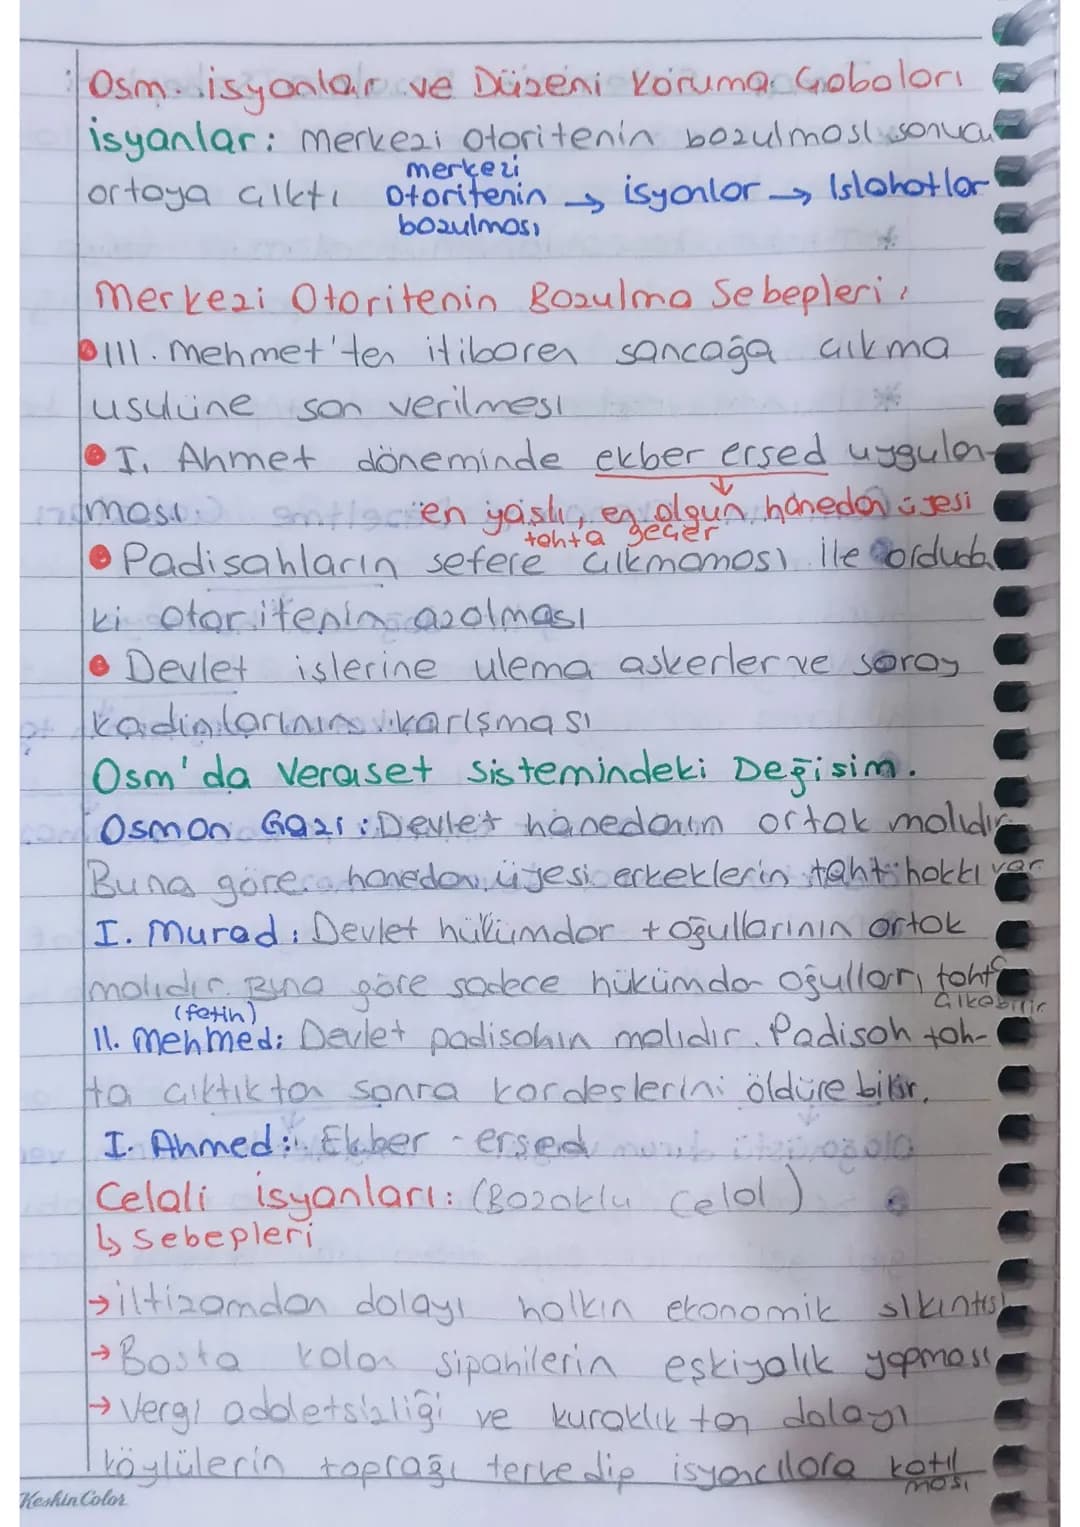 Osm. isyanlar ve Düzeni Koruma Çabaları
isyanlar: merkezi otoritenin bozulması sonucu
ortaya çıktı merkezi otoritenin bozulması → isyanlar → Islahatlar
Merkezi Otoritenin Bozulma Sebepleri,
III. Mehmet'ten itibaren sancağa çıkma
usulüne son verilmesi
I. Ahmet döneminde ekber erşed uygulan-
ması ↓ en yaşlı, en olgun hanedan üyesi
tahta geçer
Padişahların sefere çıkmaması ile orduda
ki otoritenin azalması
Devlet işlerine ulema askerler ve saray
kadınlarının karışması
Osm'da Veraset Sistemindeki Değişim.
Osman Gazi: Devlet hanedanın ortak malıdır
Buna göre hanedan üyesi erkeklerin taht hakkı var
I. Murad: Devlet hükümdar + oğullarının ortak
malıdır. Buna göre sadece hükümdar oğulları tahta
çıkabilir
(fatih)
II. Mehmed: Devlet padişahın malıdır. Padişah tah-
ta çıktıktan sonra kardeşlerini öldürebilir.
I. Ahmed: Ekber - erşed
Celali isyanları: (Bozoklu Celal)
↳ Sebepleri
→ iltizamdan dolayı halkın ekonomik sıkıntısı
→ Boşta kalan sipahilerin eşkiyalık yapması
→ Vergi addletsizliği ve kuraklıktan dolayı
köylülerin toprağı terkedip isyancılara katıl
ması
KeskinColor